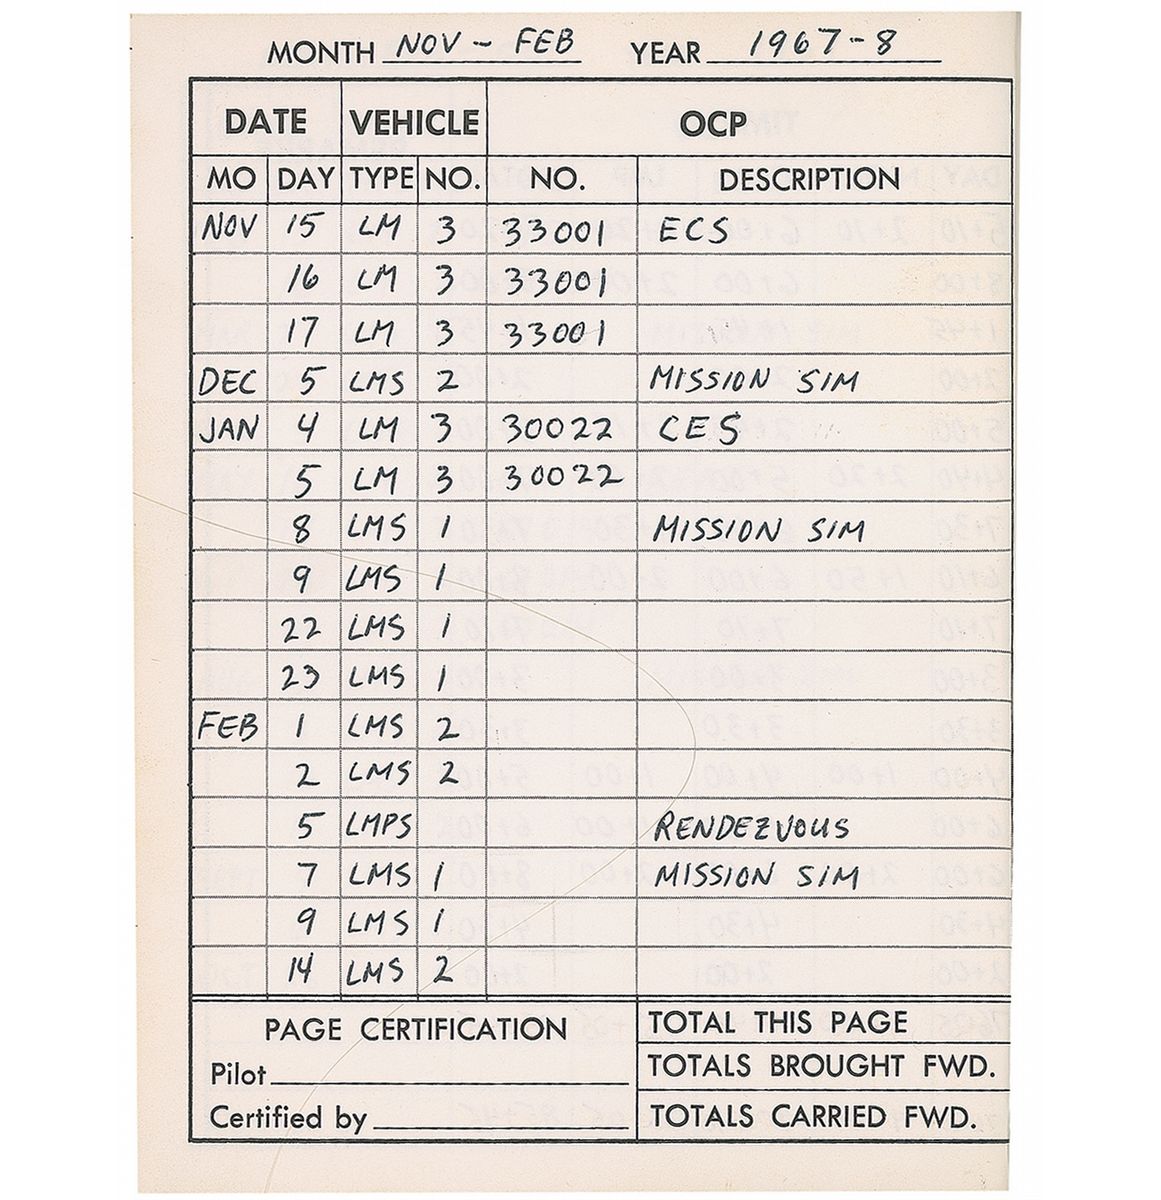 MONTH NOV - FEB YEAR 1967-8
DATE VEHICLE OCP
MO DAY TYPE NO. NO. DESCRIPTION
NOV 15 LM 3 33001 ECS
16 LM 3 33001
17 LM 3 33001
DEC 5 LMS 2 MISSION SIM
JAN 4 LM 3 30022 CES
5 LM 3 30022
8 LMS 1 MISSION SIM
9 LMS 1
22 LMS 1
23 LMS 1
FEB 1 LMS 2
2 LMS 2
5 LMPS RENDEZVOUS
7 LMS 1 MISSION SIM
9 LMS 1
14 LMS 2
PAGE CERTIFICATION
Pilot
Certified by
TOTAL THIS PAGE
TOTALS BROUGHT FWD.
TOTALS CARRIED FWD.